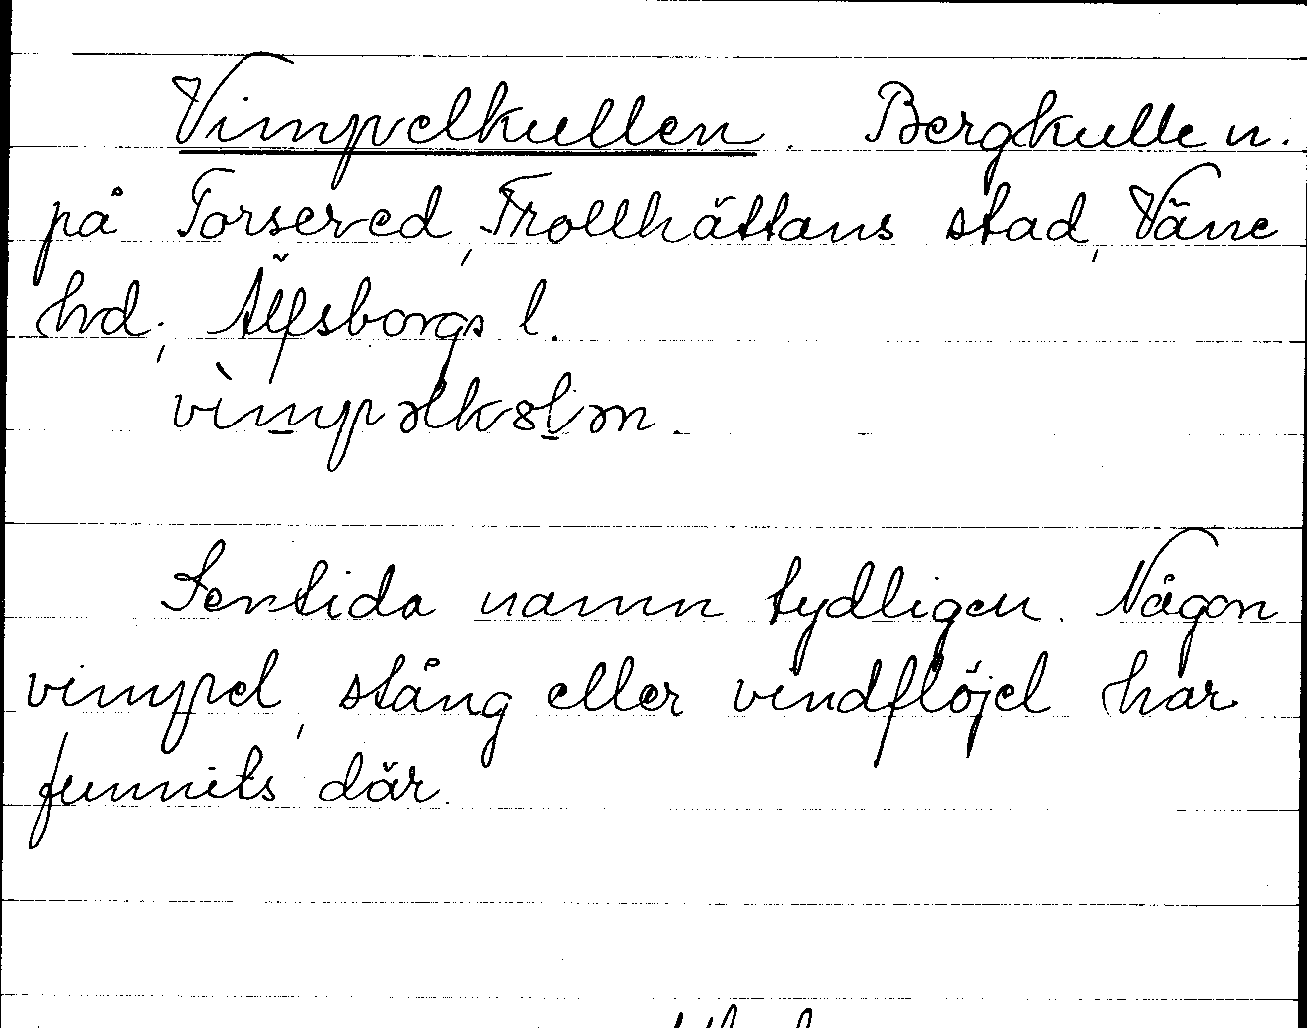 Vimpelkullen. Bergkulle n.
på Torsered, Trollhättans stad, Väne
hd, Älfsborgs l.
vìmpəlkɷlən.
Sentida namn tydligen. Någon
vimpel, stång eller vindflöjel har
funnits där.